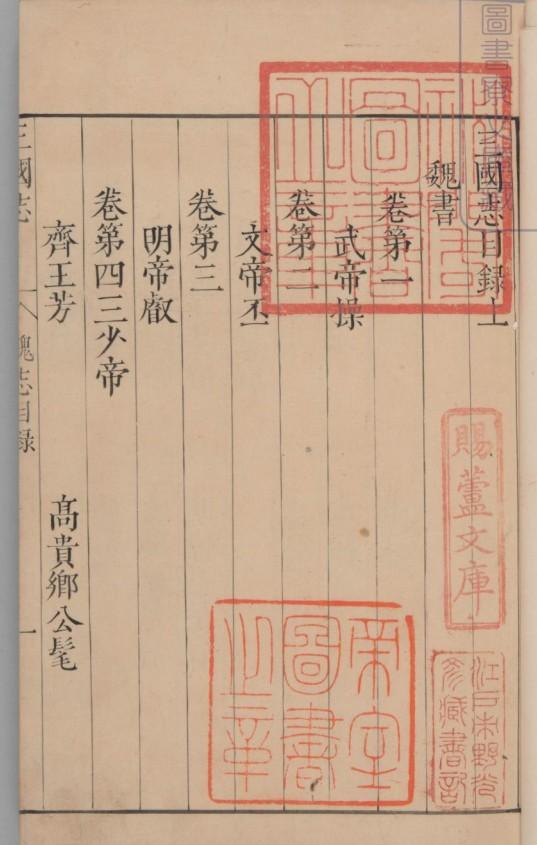 三國志目録上
魏書
卷第一
武帝操
卷第二
文帝丕
卷第三
明帝叡
卷第四三少帝
齊王芳 髙貴鄉公髦
三國志
魏志目録
一
賜蘆文庫
帝室
圖書
之章